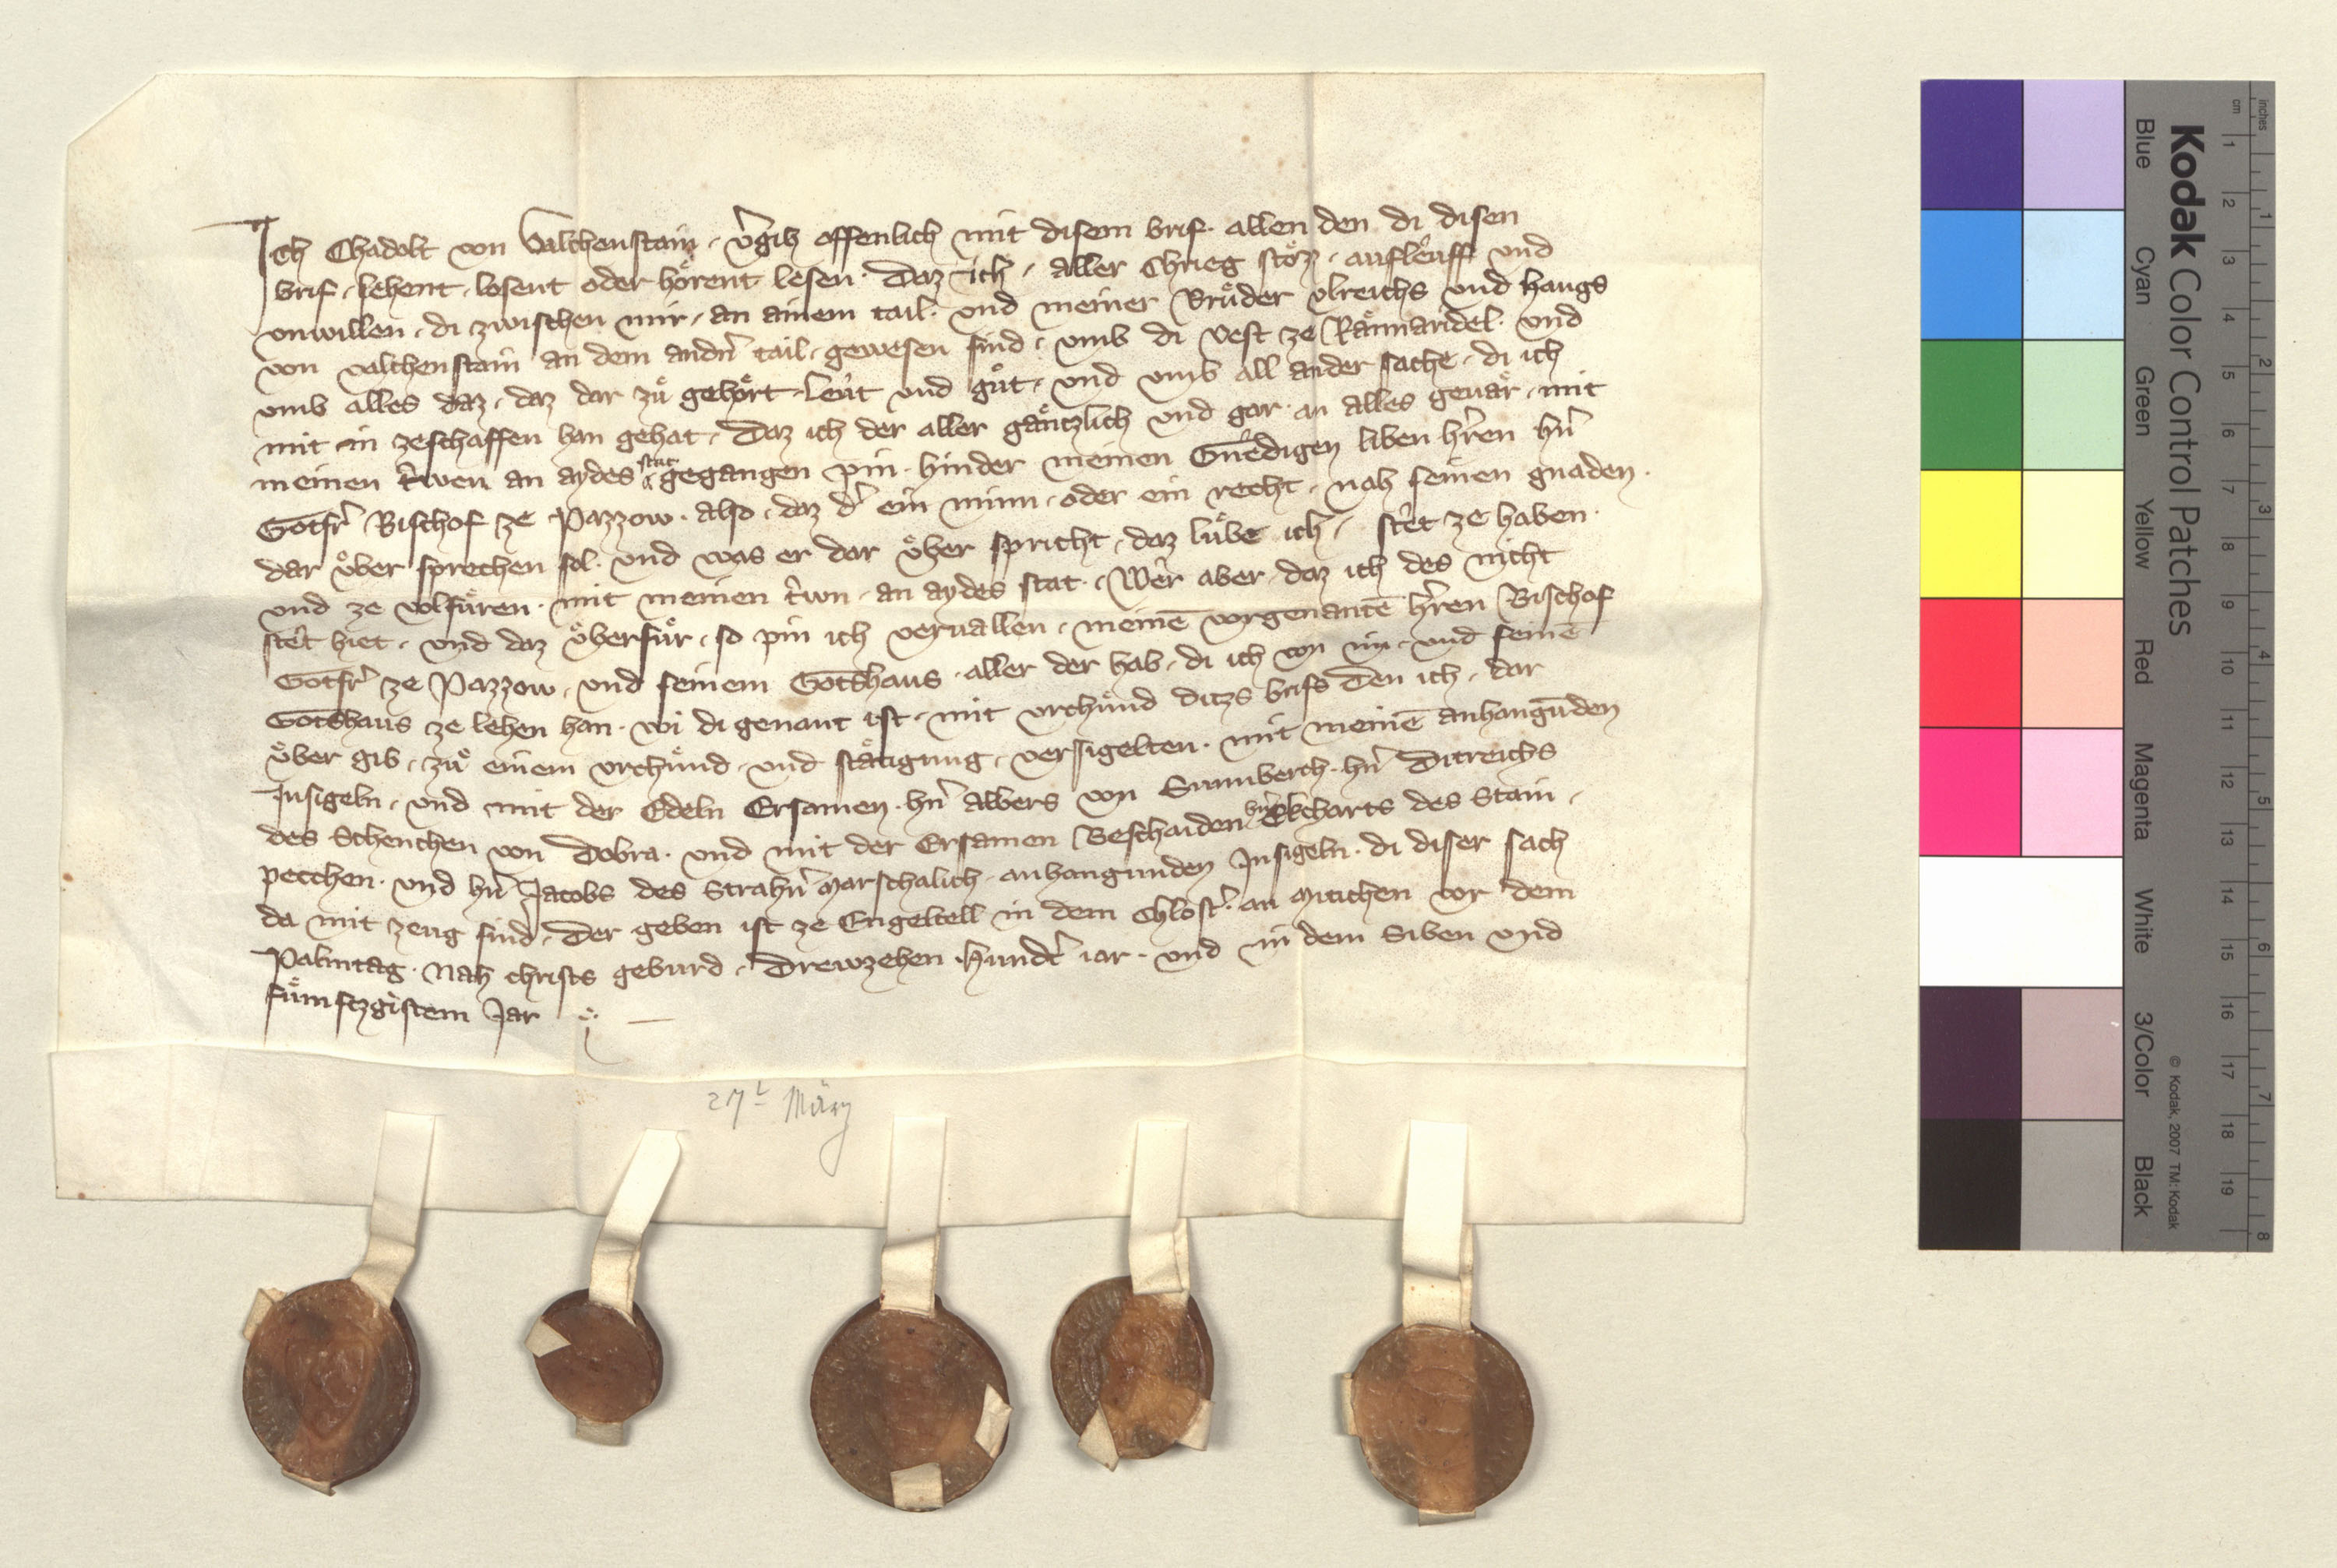 Ich Chadolt von Valchenstain, v̾gih offenlich mit disem brif. allen den di disen
brif, sehent, losent oder hoͤrent lesen. Daz ich, aller Chrieg stoͤzz, aufleͤuff und
vnwillen, di zwischen mir, an ainem tail. vnd meiner Bruͤder vlreichs vnd hangs
von valchenstain an dem andn̾ tail, gewesen sind, vmb di vest ze Raͤnnaridel. vnd
vmb alles daz, daz dar zuͤ gehoͤrt Leut vnd guͤt, vnd vmb all ander sache, di ich
mit in zeschaffen han gehat, Daz ich der aller gaͤntzlich vnd gar an alles geuaͤr, mit
meinen tr̾wen an aydes stat gegangen pin. hinder meinen Gneͤdigen liben hr̾en hn̾
Gotfr̾ Bischof ze Pazzow. also, daz d̾ ein minn, oder ein recht, nah seinen gnaden.
dar uͤber sprechen sol. vnd was er dar uͤber spricht, daz luͤbe ich, steͤt ze haben.
vnd ze volfuͤren. mit meinen tr̾wn an aydes stat. Weͤr aber daz ich des nicht
steͤt hiet, vnd daz uͤberfuͤr, so pin ich veruallen, meinē vorgenantē hr̾en Bischof
Gotfr̾ ze Pazzow, vnd seinem Gotshaus. aller der hab, di ich von im, vnd seinē
Gotshaus ze lehen han. wi di genant ist, mit vrchuͤnd ditzs brifs Den ich, dar
uͤber gib, zuͤ einem vrchuͤnd vnd staͤtigung, versigelten. mit meinē anhangūden
Insigeln, vnd mit der Edeln Ersamen. hn̾ albers von Sunnberch. hn̾ Ditreichs
des Schenchen von Dobra. vnd mit der Ersamen Beschaiden hn̾ Ekcharts des Stain,
pecchen. vnd hn̾ Jacobs des Strahn̾ marschalich anhangunden Insigeln. di diser sach
da mit zeug sind, Der geben ist ze Engeltzell in dem Chlostr̾. an mitichen vor dem
Palmtag. nah christs geburd, Drewzehen Hundt̾ iar. vnd in dem Siben vnd
fuͤmftzgistem Jar
27t März
Kodak Color Control Patches
Blue Cyan Green Yellow Red Magenta White 3/Color Black
© Kodak, 2007 TM: Kodak
cm 1 2 3 4 5 6 7 8 9 10 11 12 13 14 15 16 17 18 19
inches 1 2 3 4 5 6 7 8